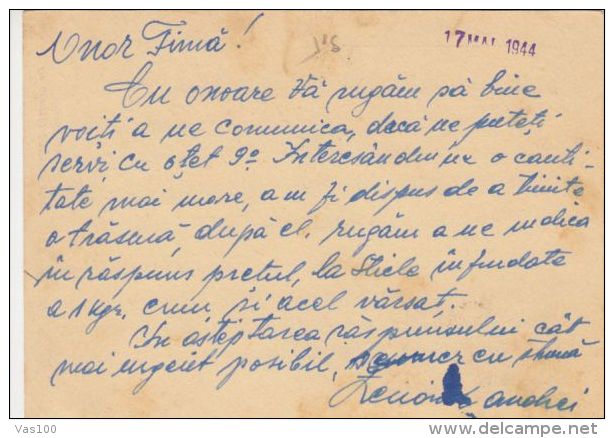 Onor Firmă!
17 MAI 1944
Cu onoare Vă rugăm să bine
voiți a ne comunica, dacă ne puteți
servi cu oțet 9º Interesându ne o canti-
tate mai mare, am fi dispus de a trimite
o trăsură după el. rugăm a ne indica
în răspuns prețul, la sticle înfundate
a 1 kgr. cum și acel vărsat.
În așteptarea răspunsului cât
mai urgent posibil, cu stimă
Andrei
Vas100
www.delcampe.net